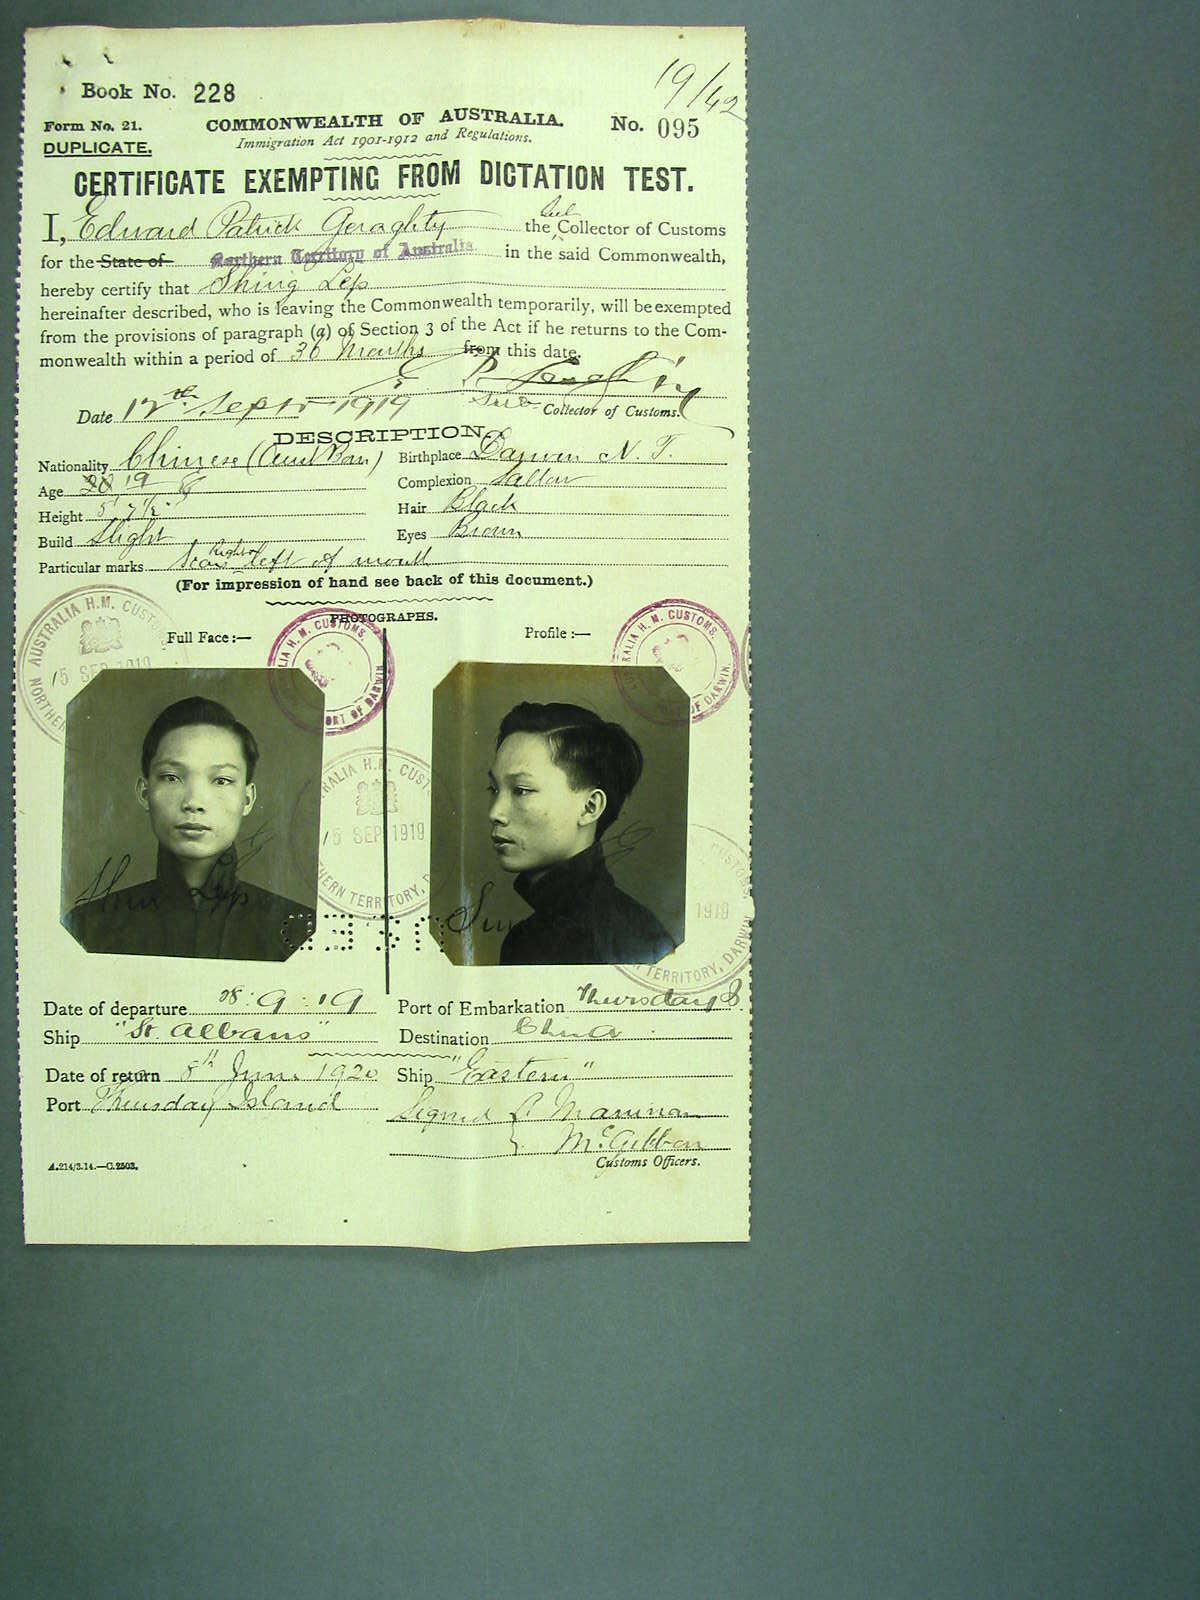 19/42
Book No. 228
Form No. 21. COMMONWEALTH OF AUSTRALIA. No. 095
DUPLICATE. Immigration Act 1901-1912 and Regulations.
CERTIFICATE EXEMPTING FROM DICTATION TEST.
I, Edward Patrick Geraghty the Sub Collector of Customs
for the State of Northern Territory of Australia in the said Commonwealth,
hereby certify that Shing Lep
hereinafter described, who is leaving the Commonwealth temporarily, will be exempted
from the provisions of paragraph (a) of Section 3 of the Act if he returns to the Com-
monwealth within a period of 36 Months from this date.
Date 12th Septr 1919 Sub Collector of Customs.
DESCRIPTION.
Nationality Chinese (Aust Born) Birthplace Darwin N. T.
Age 20 19 Complexion Sallow
Height 5' 7½" Hair Black
Build Slight Eyes Brown
Particular marks Scar right left of mouth
(For impression of hand see back of this document.)
PHOTOGRAPHS.
Full Face :— Profile :—
AUSTRALIA H.M. CUSTOMS
15 SEP 1919
NORTHERN
H. M. CUSTOMS.
PORT OF DARWIN
AUSTRALIA H. M. CUSTOMS.
OF DARWIN.
AUSTRALIA H.M. CUST
15 SEP 1919
HERN TERRITORY, D
CUSTOMS
1919
TERRITORY, DARWIN
Shin Lep
Date of departure 28 : 9 : 19 Port of Embarkation Thursday I.
Ship "St. Albans" Destination China
Date of return 8th June 1920 Ship "Eastern"
Port Thursday Island Signed
McGibbon
A.214/3.14.—C.2503. Customs Officers.